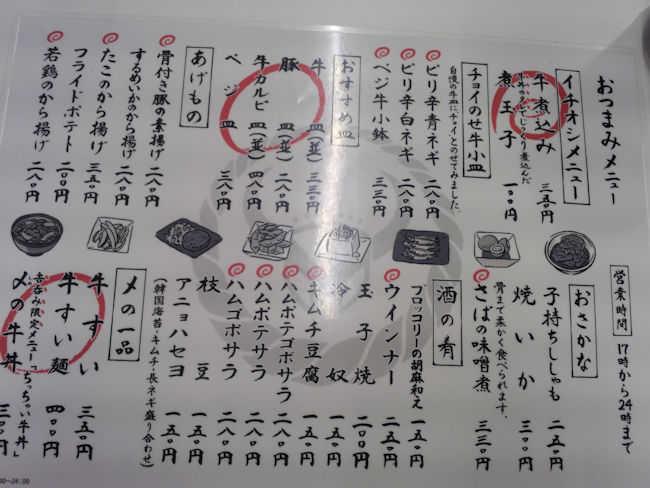 おつまみメニュー
イチオシメニュー
牛煮込み 三五〇円
牛丼のタレでじっくり煮込んだ
煮玉子 一〇〇円
チョイのせ牛小皿
自慢の牛皿にチョイとのせてみました。
ピリ辛青ネギ 二八〇円
ピリ辛白ネギ 二八〇円
ベジ牛小鉢 三三〇円
おすすめ皿
牛皿(並) 三三〇円
豚皿(並) 二八〇円
牛カルビ皿(並) 四八〇円
ベジ皿 三八〇円
あげもの
骨付き豚の素揚げ 二八〇円
するめいかのから揚げ 二八〇円
たこのから揚げ 三五〇円
フライドポテト 二〇〇円
若鶏のから揚げ 二八〇円
営業時間 17時から24時まで
おさかな
子持ちししゃも 二五〇円
焼いか 三〇〇円
骨まで柔かく食べられます。
さばの味噌煮 三三〇円
酒の肴
ブロッコリーの胡麻和え 一五〇円
ウインナー 二五〇円
玉子焼 二〇〇円
冷奴 一五〇円
キムチ豆腐 一五〇円
ハムポテゴボサラ 二八〇円
ハムポテサラ 二八〇円
ハムゴボサラ 二八〇円
枝豆 一五〇円
アニョハセヨ 一五〇円
(韓国海苔・キムチ・長ネギ盛り合わせ)
〆の一品
牛すい 三五〇円
牛すい麺 四〇〇円
吉呑み限定メニュー「ちっちゃい牛丼」
〆の牛丼 三〇〇円
00~24:00